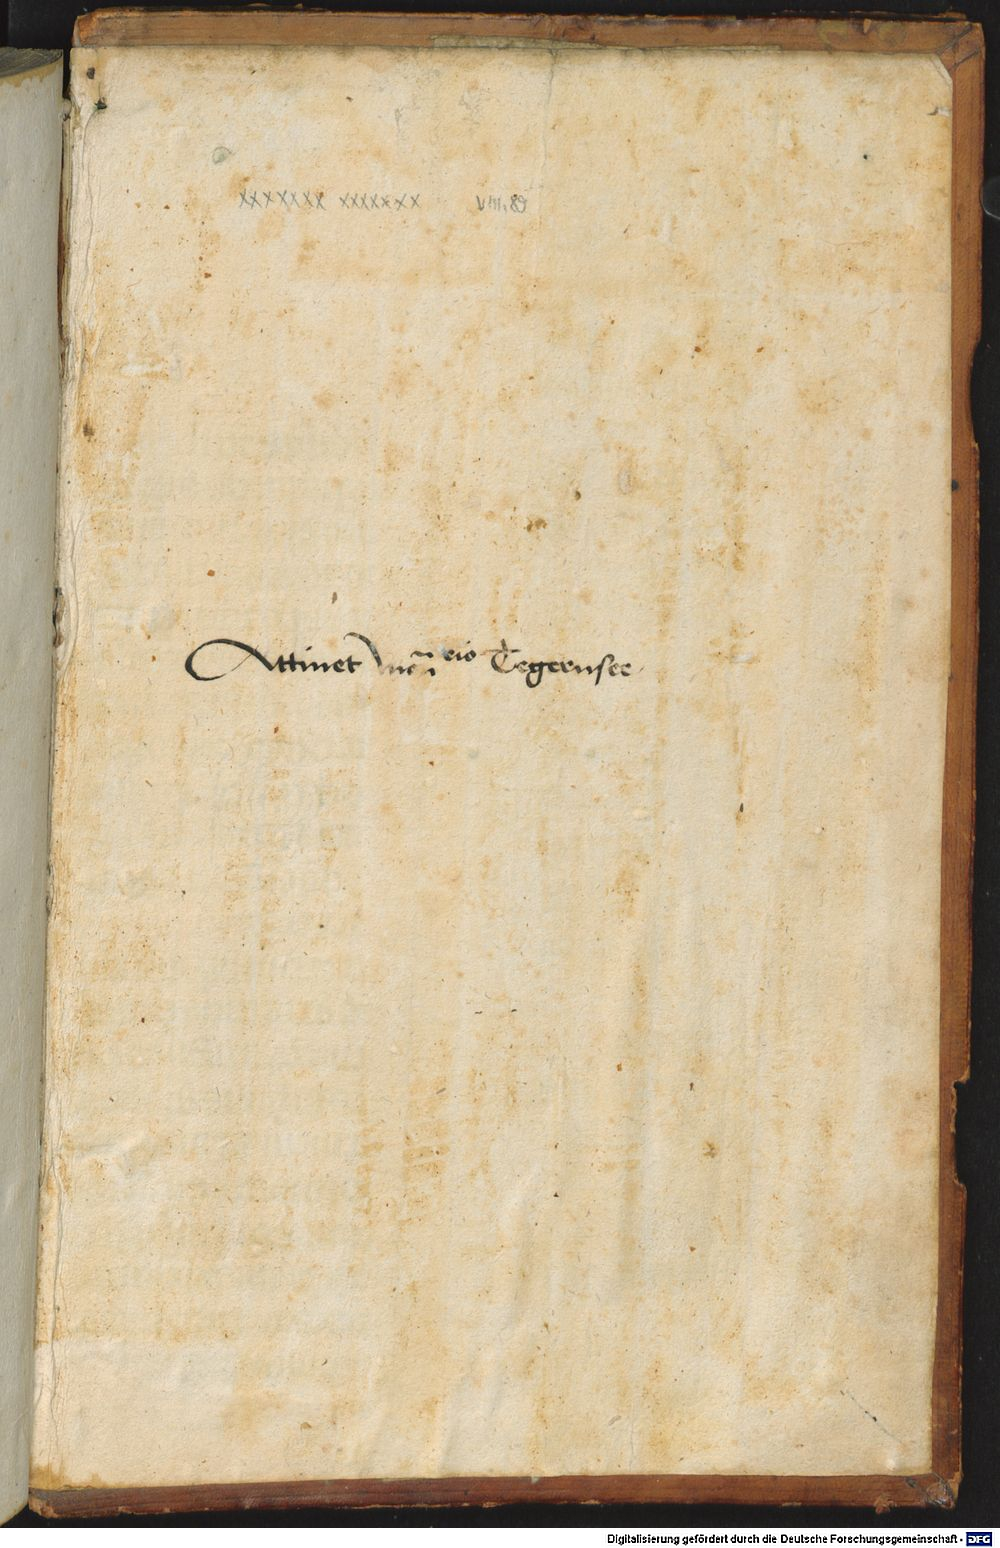 xxxxxxx xxxxxxx
Attinet Mon̄ eio Tegernsee
Digitalisierung gefördert durch die Deutsche Forschungsgemeinschaft - DFG